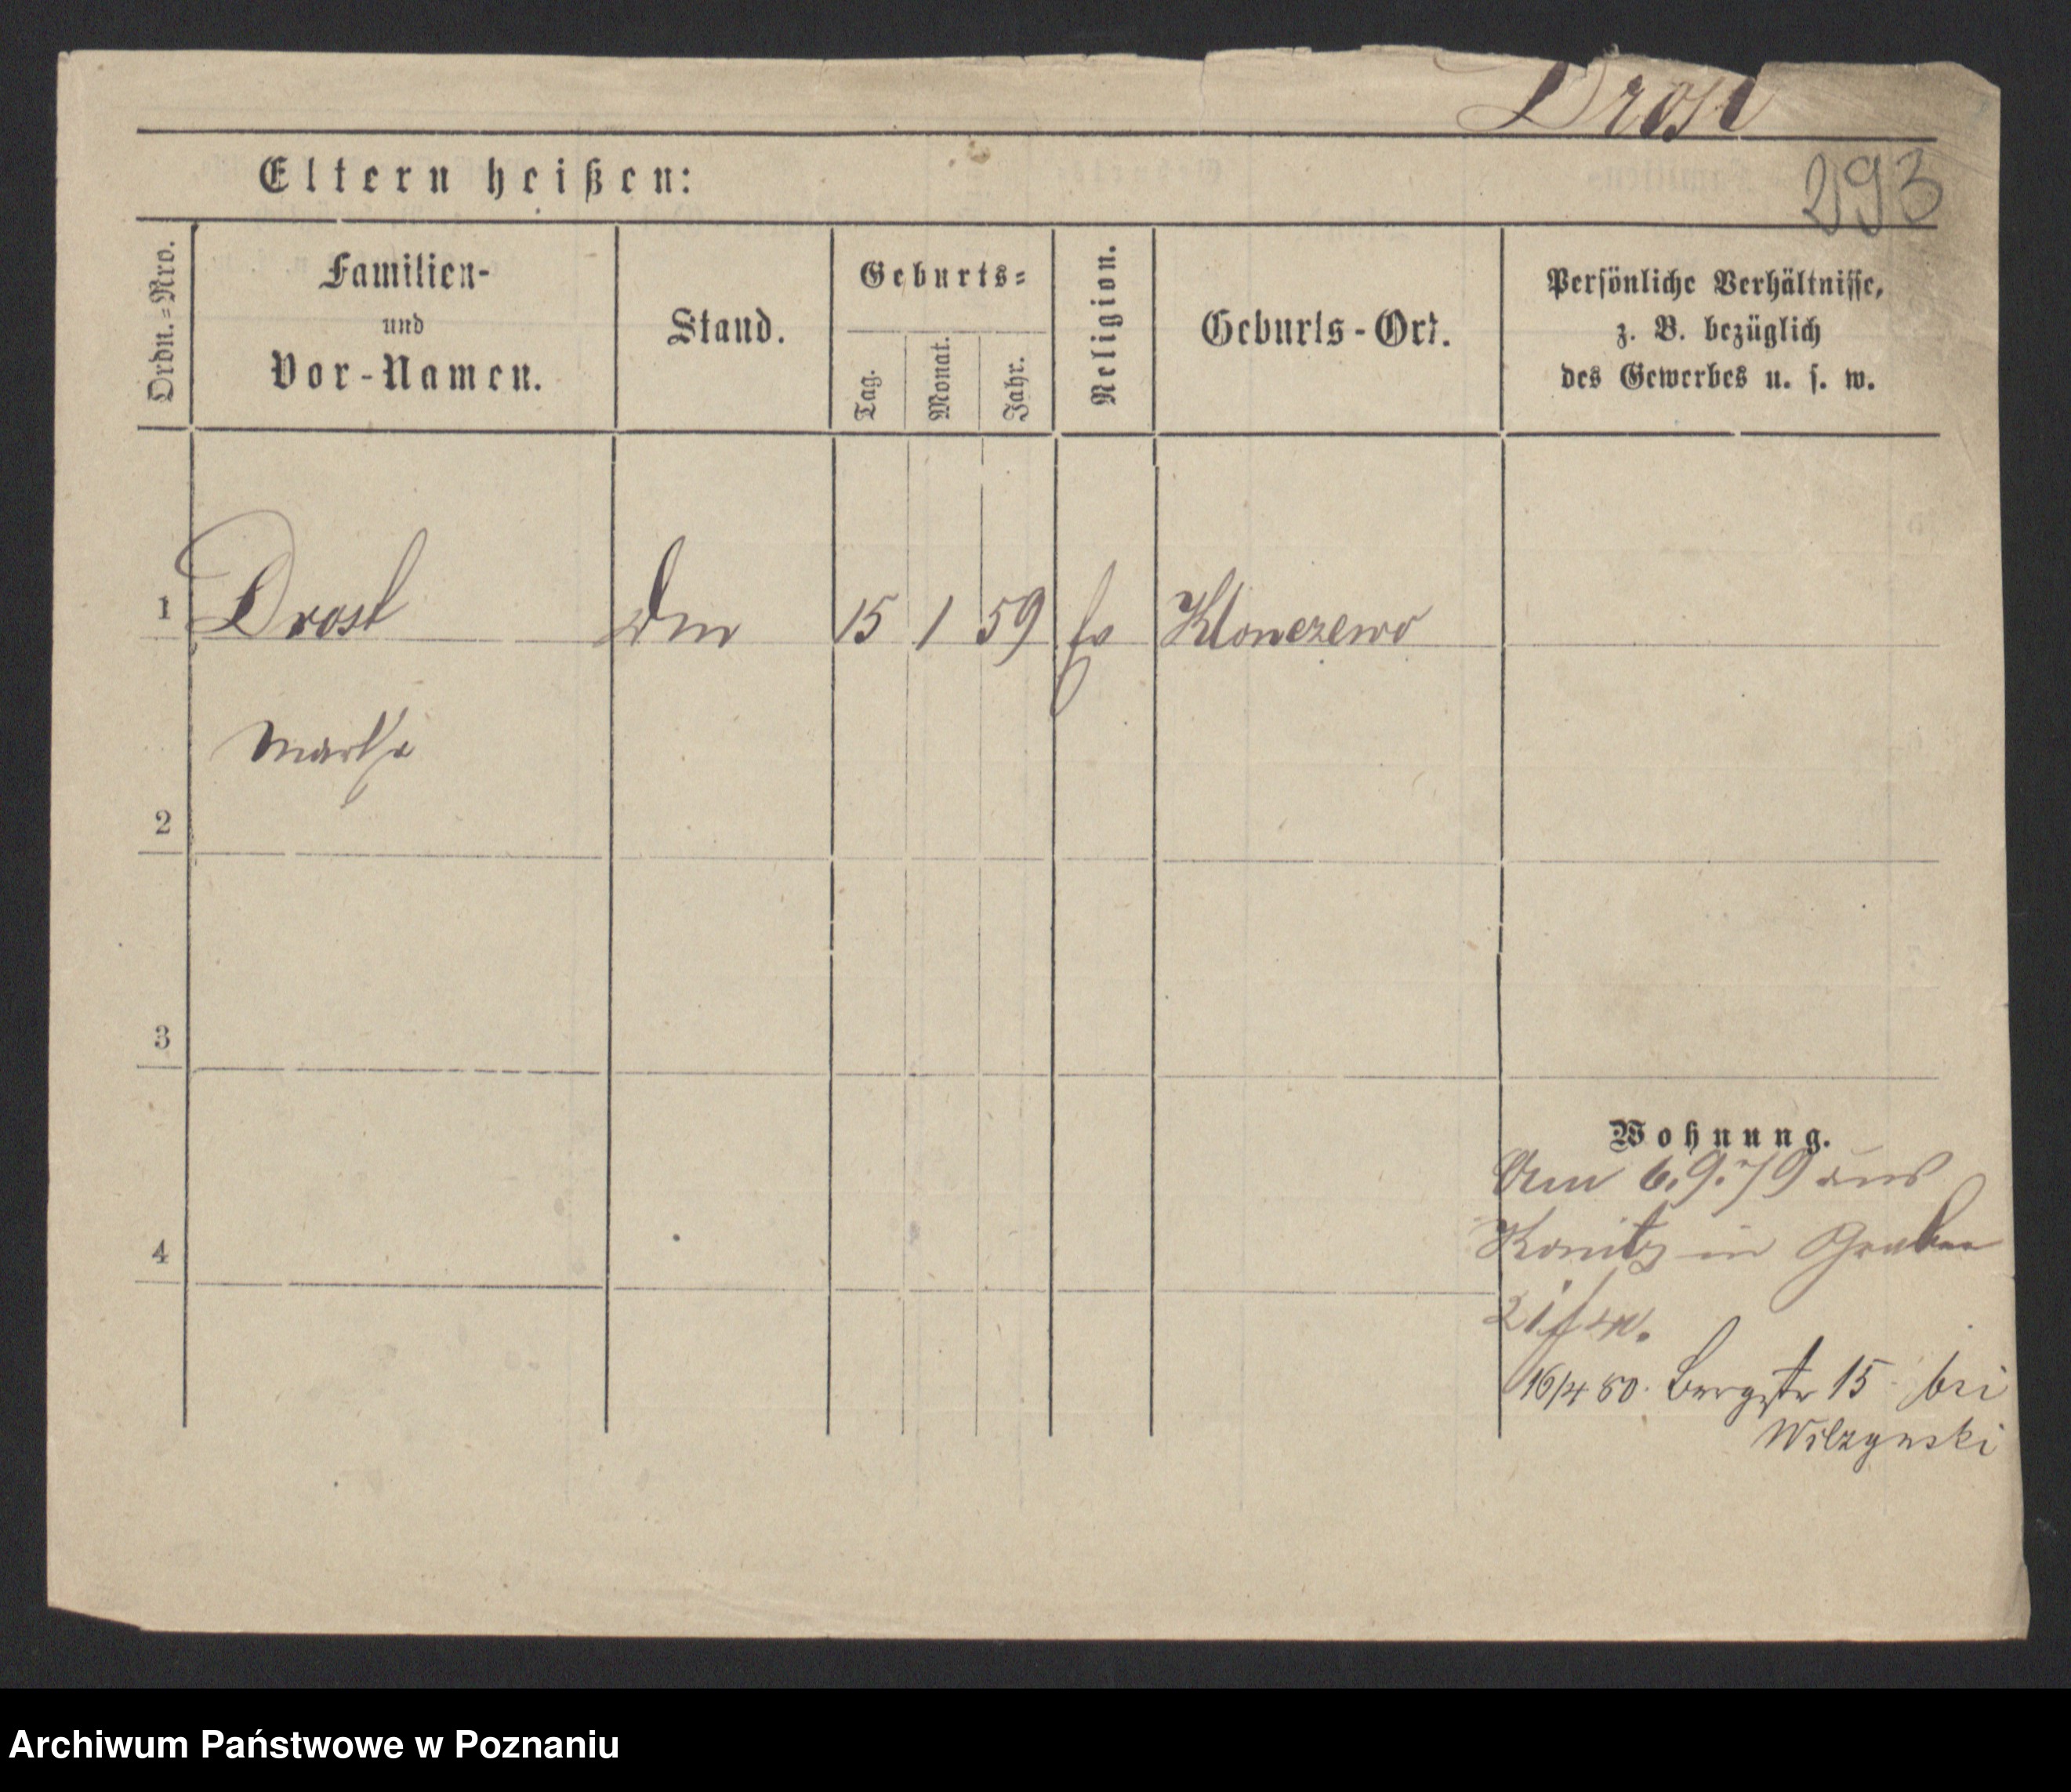 Drost
293
Eltern heißen:
Ordn.=Nro.
Familien-
und
Vor-Namen.
Stand.
Geburts=
Tag.
Monat.
Jahr.
Religion.
Geburts-Ort.
Persönliche Verhältnisse,
z. B. bezüglich
des Gewerbes u. s. w.
1 Drost 15 1 59 Klonczewo
Martha
2
3
4
Wohnung.
Am 6.9.79 aus
Konitz in Graben
21
16/4 80. Bergstr 15 bei
Wilzynski
Archiwum Państwowe w Poznaniu